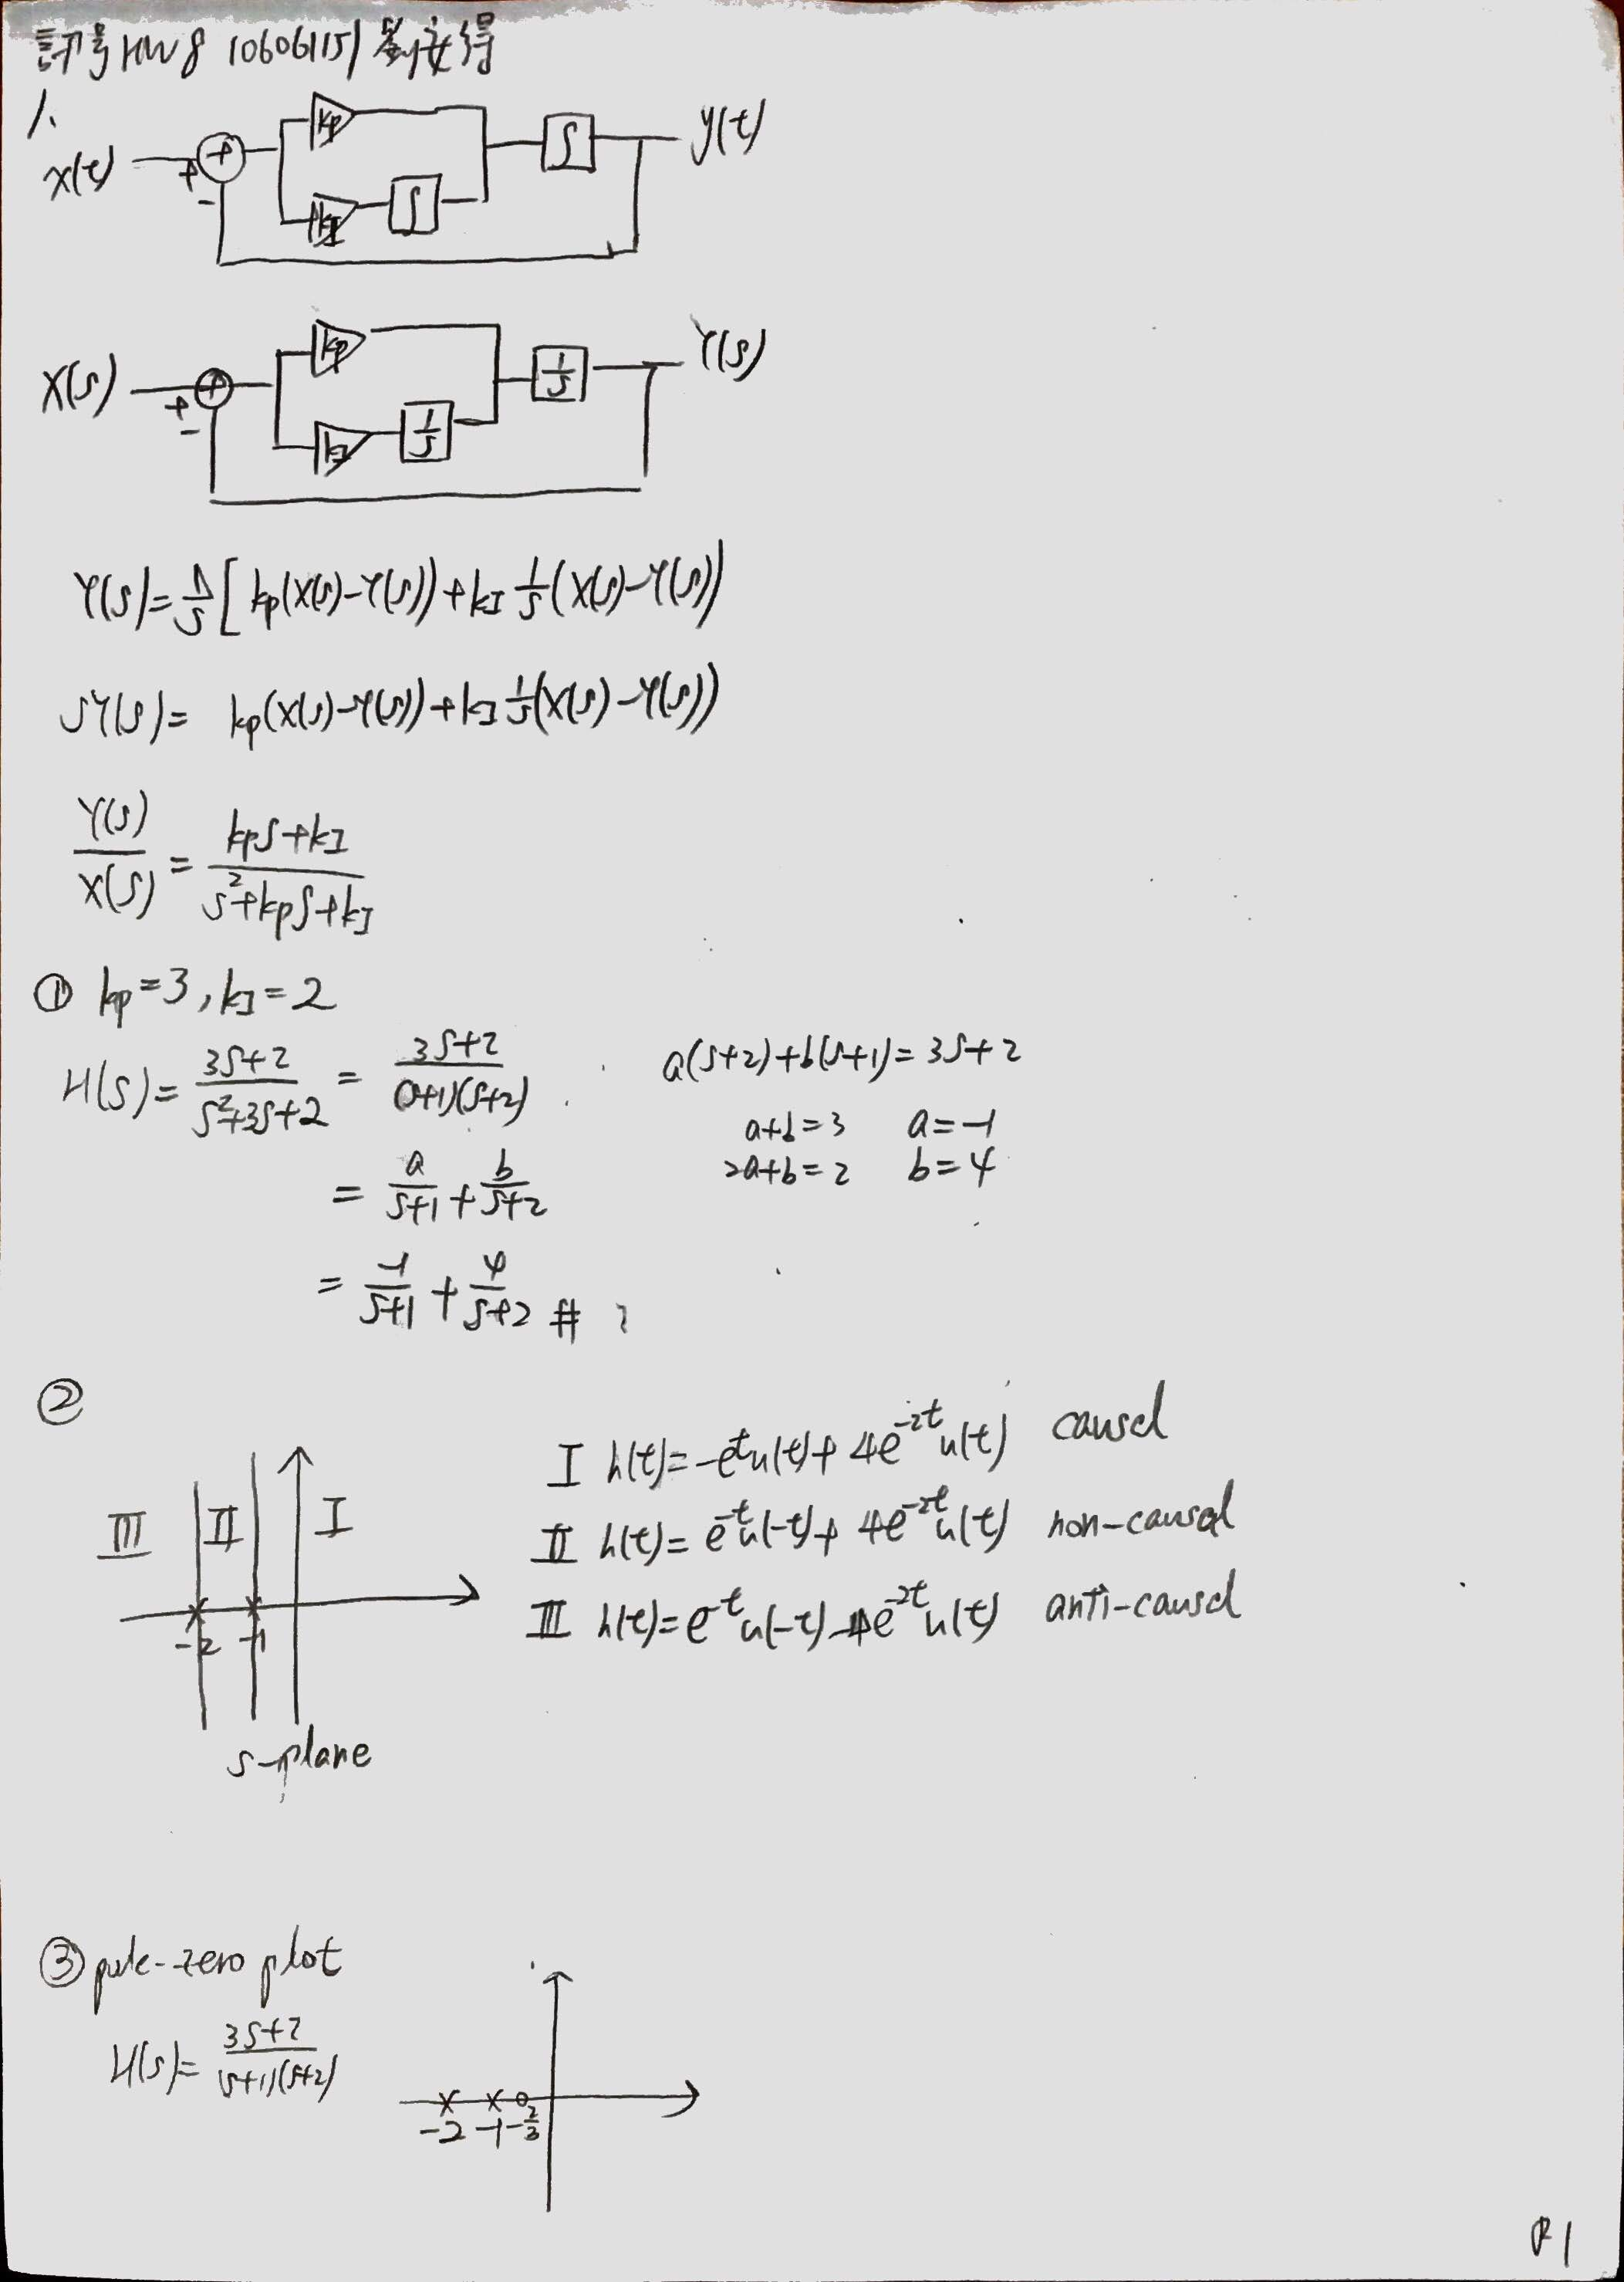 訊号HW8 106061151 劉安得
1.
x(t) + - + kp kI ∫ ∫ y(t)
X(s) + - + kp kI 1/s 1/s Y(s)
Y(s)=1/s[kp(X(s)-Y(s))+kI 1/s(X(s)-Y(s))
sY(s)= kp(X(s)-Y(s))+kI 1/s(X(s)-Y(s))
Y(s)/X(s) = kps+kI/s²+kps+kI
① kp=3, kI=2
H(s)= 3s+2/s²+3s+2 = 3s+2/(s+1)(s+2) a(s+2)+b(s+1)=3s+2
a+b=3 a=-1
2a+b=2 b=4
= a/s+1 + b/s+2
= -1/s+1 + 4/s+2 #
②
III II I
-2 -1
s-plane
I h(t)=-e^-t u(t)+4e^-2t u(t) causal
II h(t)=e^-t u(-t)+4e^-2t u(t) non-causal
III h(t)=e^-t u(-t)-4e^-2t u(t) anti-causal
③ pole-zero plot
H(s)= 3s+2/(s+1)(s+2)
-2 -1 -2/3
P1